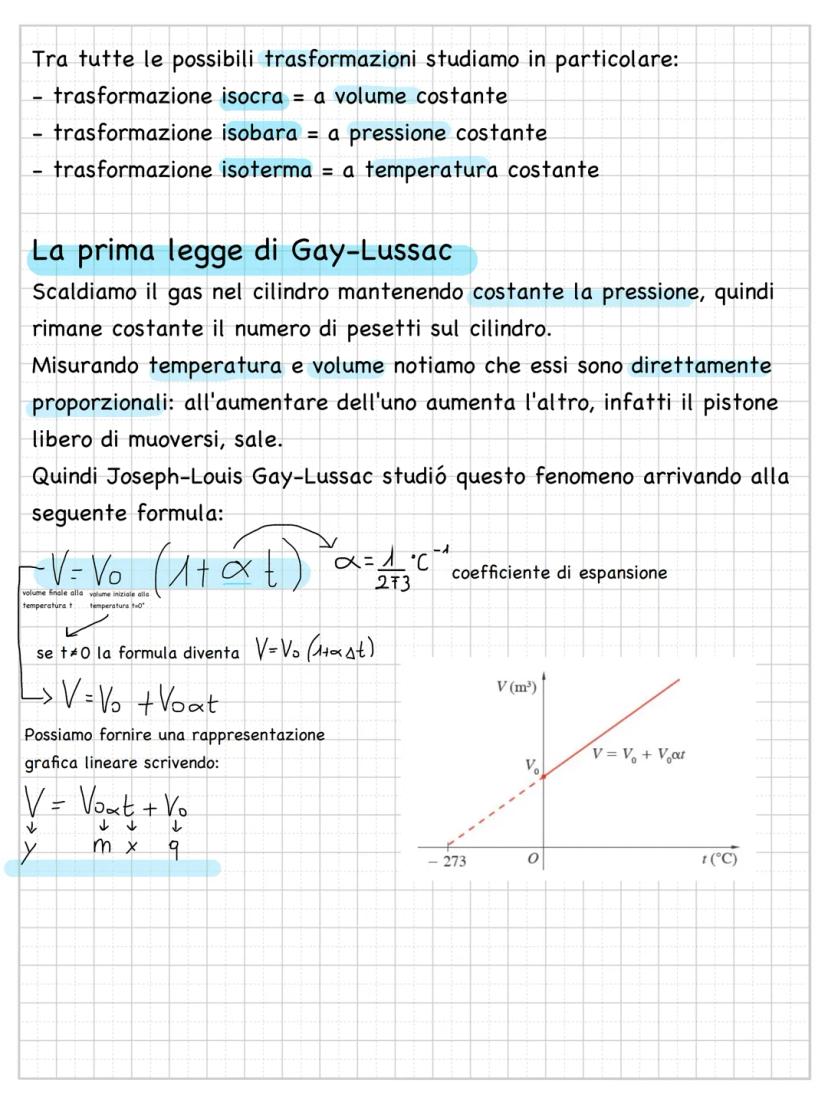 Tra tutte le possibili trasformazioni studiamo in particolare:
- trasformazione isocra = a volume costante
- trasformazione isobara = a pressione costante
- trasformazione isoterma = a temperatura costante
La prima legge di Gay-Lussac
Scaldiamo il gas nel cilindro mantenendo costante la pressione, quindi
rimane costante il numero di pesetti sul cilindro.
Misurando temperatura e volume notiamo che essi sono direttamente
proporzionali: all'aumentare dell'uno aumenta l'altro, infatti il pistone
libero di muoversi, sale.
Quindi Joseph-Louis Gay-Lussac studió questo fenomeno arrivando alla
seguente formula:
V = V₀ (1 + α t) α = 1/273 °C⁻¹ coefficiente di espansione
volume finale alla volume iniziale alla
temperatura t temperatura t=0°
se t≠0 la formula diventa V=V₀ (1+αΔt)
V = V₀ + V₀αt
Possiamo fornire una rappresentazione
grafica lineare scrivendo:
V = V₀αt + V₀
↓ ↓ ↓ ↓
y m x q
V (m³)
V = V₀ + V₀αt
V₀
– 273 O t (°C)